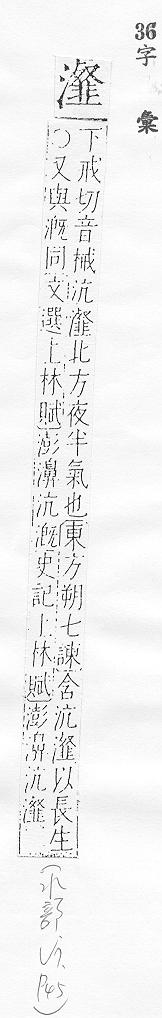 36
字彙
瀣
下戒切音械沆瀣北方夜半氣也東方朔七諫含沆瀣以長生
○又與溉同文選上林賦澎濞沆溉史記上林賦澎濞沆瀣
(水部
P45)